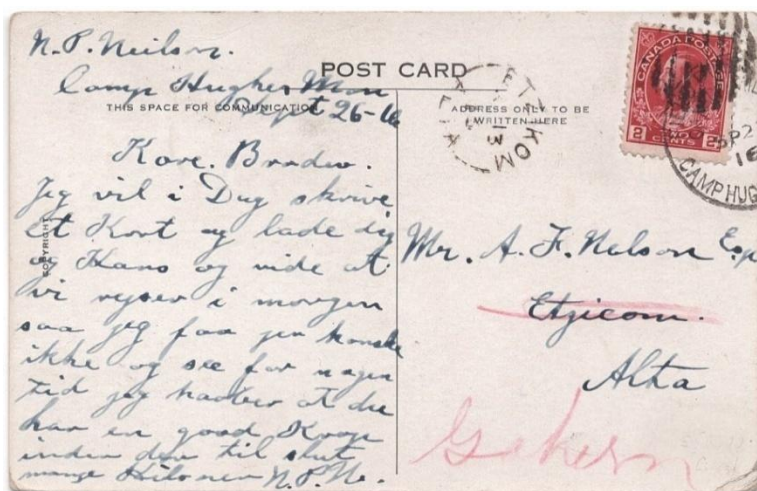 N.P. Neilson.
Camp Hughes Man
Sept 26-16
POST CARD
THIS SPACE FOR COMMUNICATION
ADDRESS ONLY TO BE
WRITTEN HERE
COPYRIGHT
Kare. Broder.
Jeg vil i Dag skrive
et Kort og lade dig
og Hans og vide at
vi rejser i morgen
saa jeg faar jer kanske
ikke og see for nogen
tid jeg haaber at du
har en good Krop
inden den til slut
mange Hilsner N.P.N.
CANADA POSTAGE
2 TWO CENTS 2
ETZIKOM
ALTA
13
CAMP HUG
16
Mr. A. F. Nelson Esq
Etzicom.
Alta